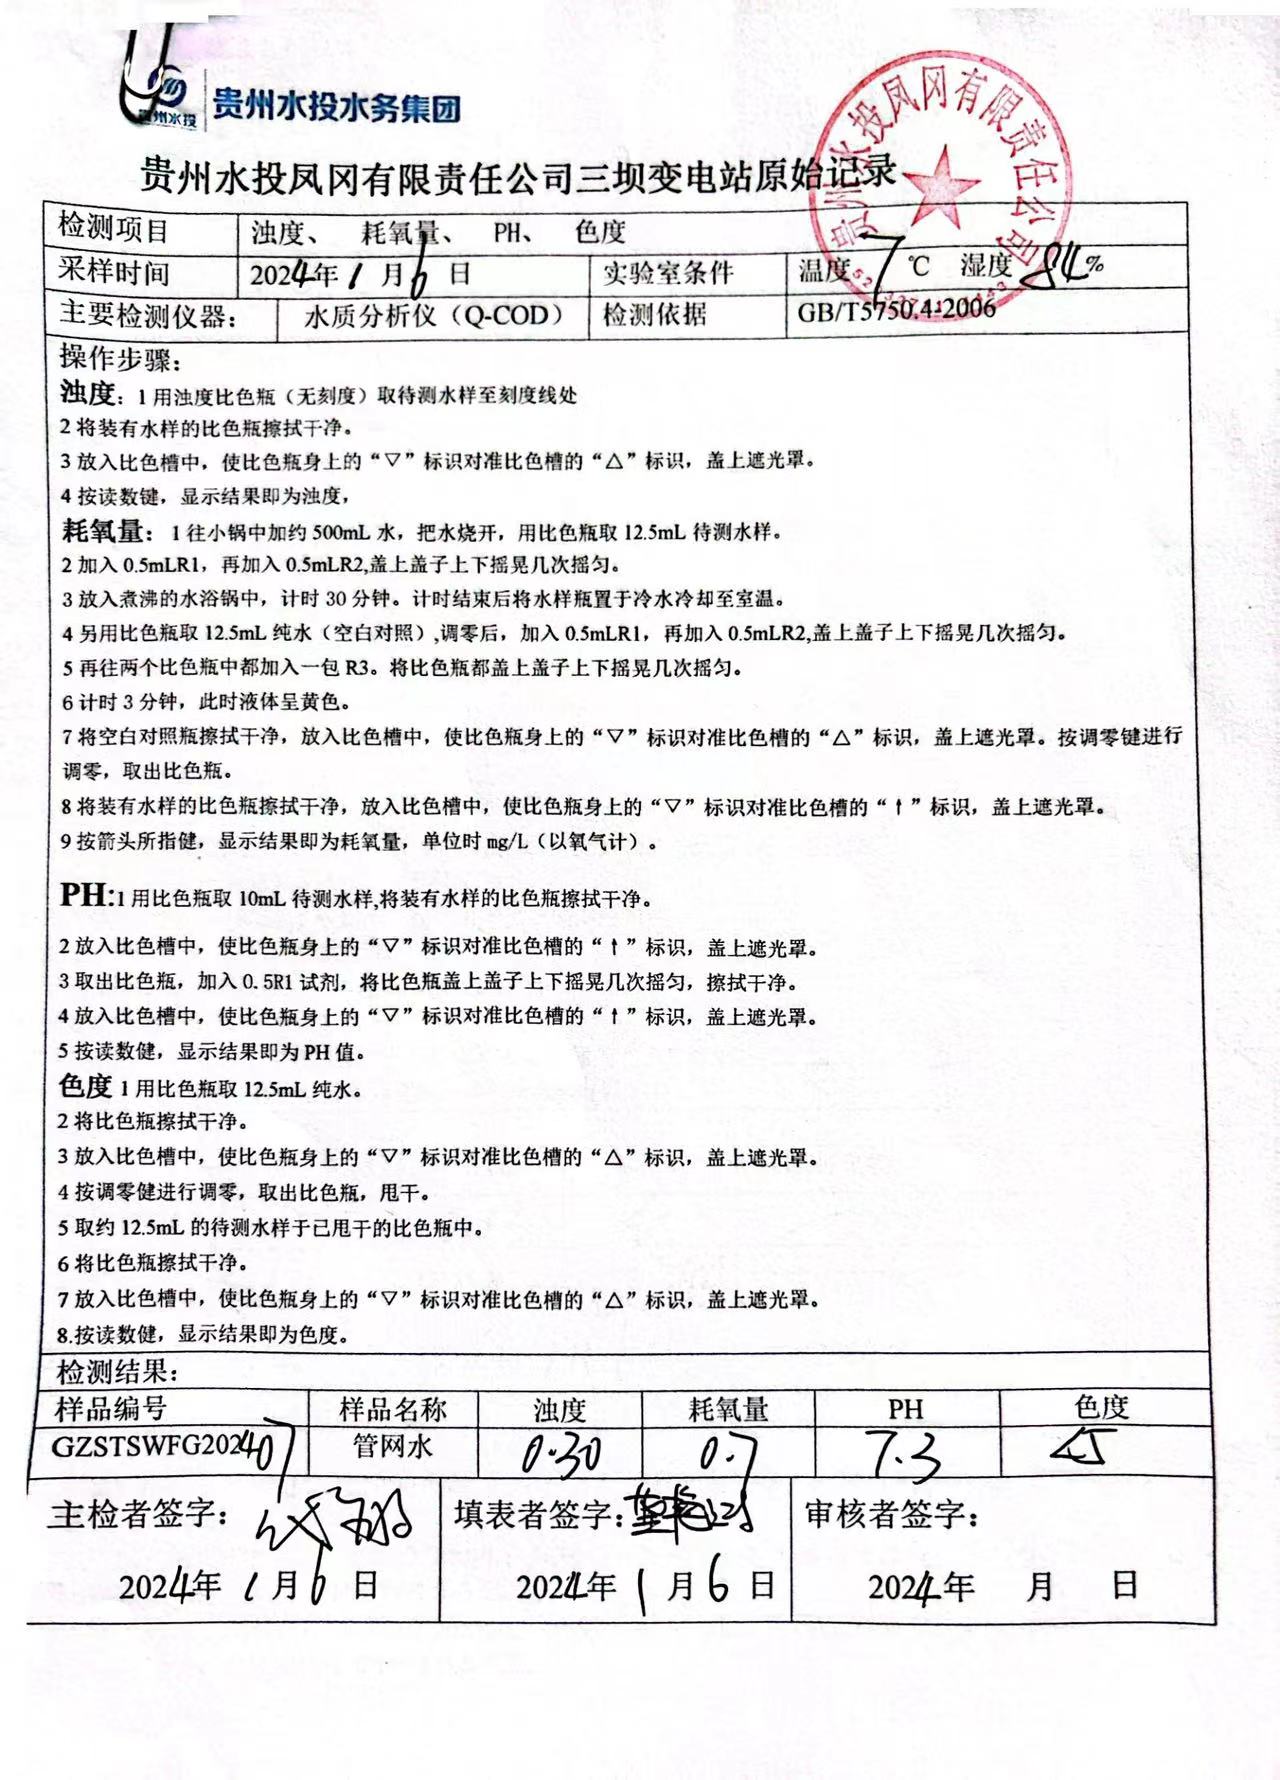 贵州水投
贵州水投水务集团
贵州水投凤冈有限责任公司
贵州水投凤冈有限责任公司三坝变电站原始记录
检测项目 浊度、 耗氧量、 PH、 色度
采样时间 2024年1月6日 实验室条件 温度7℃ 湿度84%
主要检测仪器： 水质分析仪（Q-COD） 检测依据 GB/T5750.4-2006
操作步骤：
浊度：1用浊度比色瓶（无刻度）取待测水样至刻度线处
2将装有水样的比色瓶擦拭干净。
3放入比色槽中，使比色瓶身上的“▽”标识对准比色槽的“△”标识，盖上遮光罩。
4按读数键，显示结果即为浊度，
耗氧量：1往小锅中加约500mL水，把水烧开，用比色瓶取12.5mL待测水样。
2加入0.5mLR1，再加入0.5mLR2,盖上盖子上下摇晃几次摇匀。
3放入煮沸的水浴锅中，计时30分钟。计时结束后将水样瓶置于冷水冷却至室温。
4另用比色瓶取12.5mL纯水（空白对照）,调零后，加入0.5mLR1，再加入0.5mLR2,盖上盖子上下摇晃几次摇匀。
5再往两个比色瓶中都加入一包R3。将比色瓶都盖上盖子上下摇晃几次摇匀。
6计时3分钟，此时液体呈黄色。
7将空白对照瓶擦拭干净，放入比色槽中，使比色瓶身上的“▽”标识对准比色槽的“△”标识，盖上遮光罩。按调零键进行
调零，取出比色瓶。
8将装有水样的比色瓶擦拭干净，放入比色槽中，使比色瓶身上的“▽”标识对准比色槽的“↑”标识，盖上遮光罩。
9按箭头所指健，显示结果即为耗氧量，单位时mg/L（以氧气计）。
PH:1用比色瓶取10mL待测水样,将装有水样的比色瓶擦拭干净。
2放入比色槽中，使比色瓶身上的“▽”标识对准比色槽的“↑”标识，盖上遮光罩。
3取出比色瓶，加入0.5R1试剂，将比色瓶盖上盖子上下摇晃几次摇匀，擦拭干净。
4放入比色槽中，使比色瓶身上的“▽”标识对准比色槽的“↑”标识，盖上遮光罩。
5按读数健，显示结果即为PH值。
色度1用比色瓶取12.5mL纯水。
2将比色瓶擦拭干净。
3放入比色槽中，使比色瓶身上的“▽”标识对准比色槽的“△”标识，盖上遮光罩。
4按调零健进行调零，取出比色瓶，甩干。
5取约12.5mL的待测水样于已甩干的比色瓶中。
6将比色瓶擦拭干净。
7放入比色槽中，使比色瓶身上的“▽”标识对准比色槽的“△”标识，盖上遮光罩。
8.按读数健，显示结果即为色度。
检测结果：
样品编号 样品名称 浊度 耗氧量 PH 色度
GZSTSWFG202407 管网水 0.30 0.7 7.3 <5
主检者签字： 填表者签字： 审核者签字：
2024年1月6日 2024年1月6日 2024年 月 日